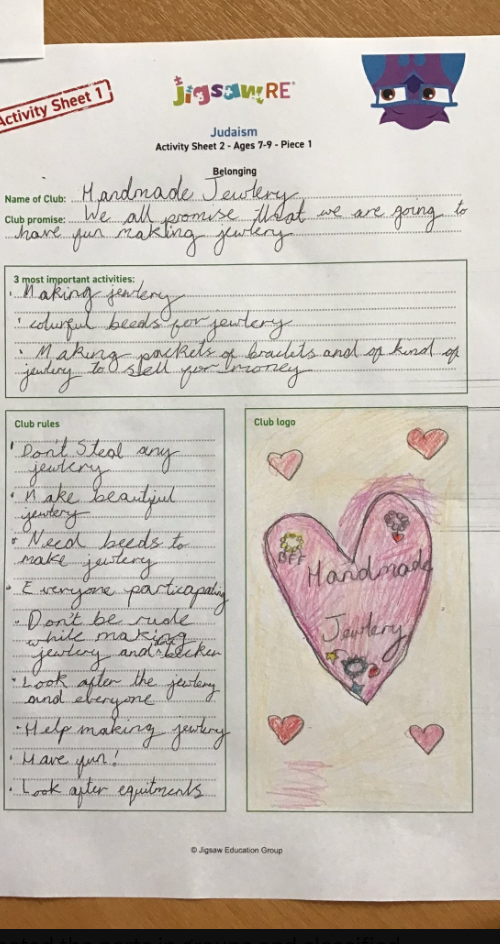 Activity Sheet 1
jigsaw RE
Judaism
Activity Sheet 2 - Ages 7-9 - Piece 1
Belonging
Name of Club: Handmade Jewtlery
Club promise: We all promise that we are going to
have fun making jewtlery
3 most important activities:
Making jewtlery
colurful beeds for jewtlery
Making packets of braclits and of kind of
jewtlery to sell for money
Club rules
Don't Steal any
jewtlery
Make beautiful
jewtlery
Need beeds to
make jewtlery
Everyone particapating
Don't be rude
while making
jewtlery and
Look after the jewtlery
and everyone
Help making jewtlery
Have fun!
Look after equitments
Club logo
BFF
Handmade
Jewtlery
© Jigsaw Education Group